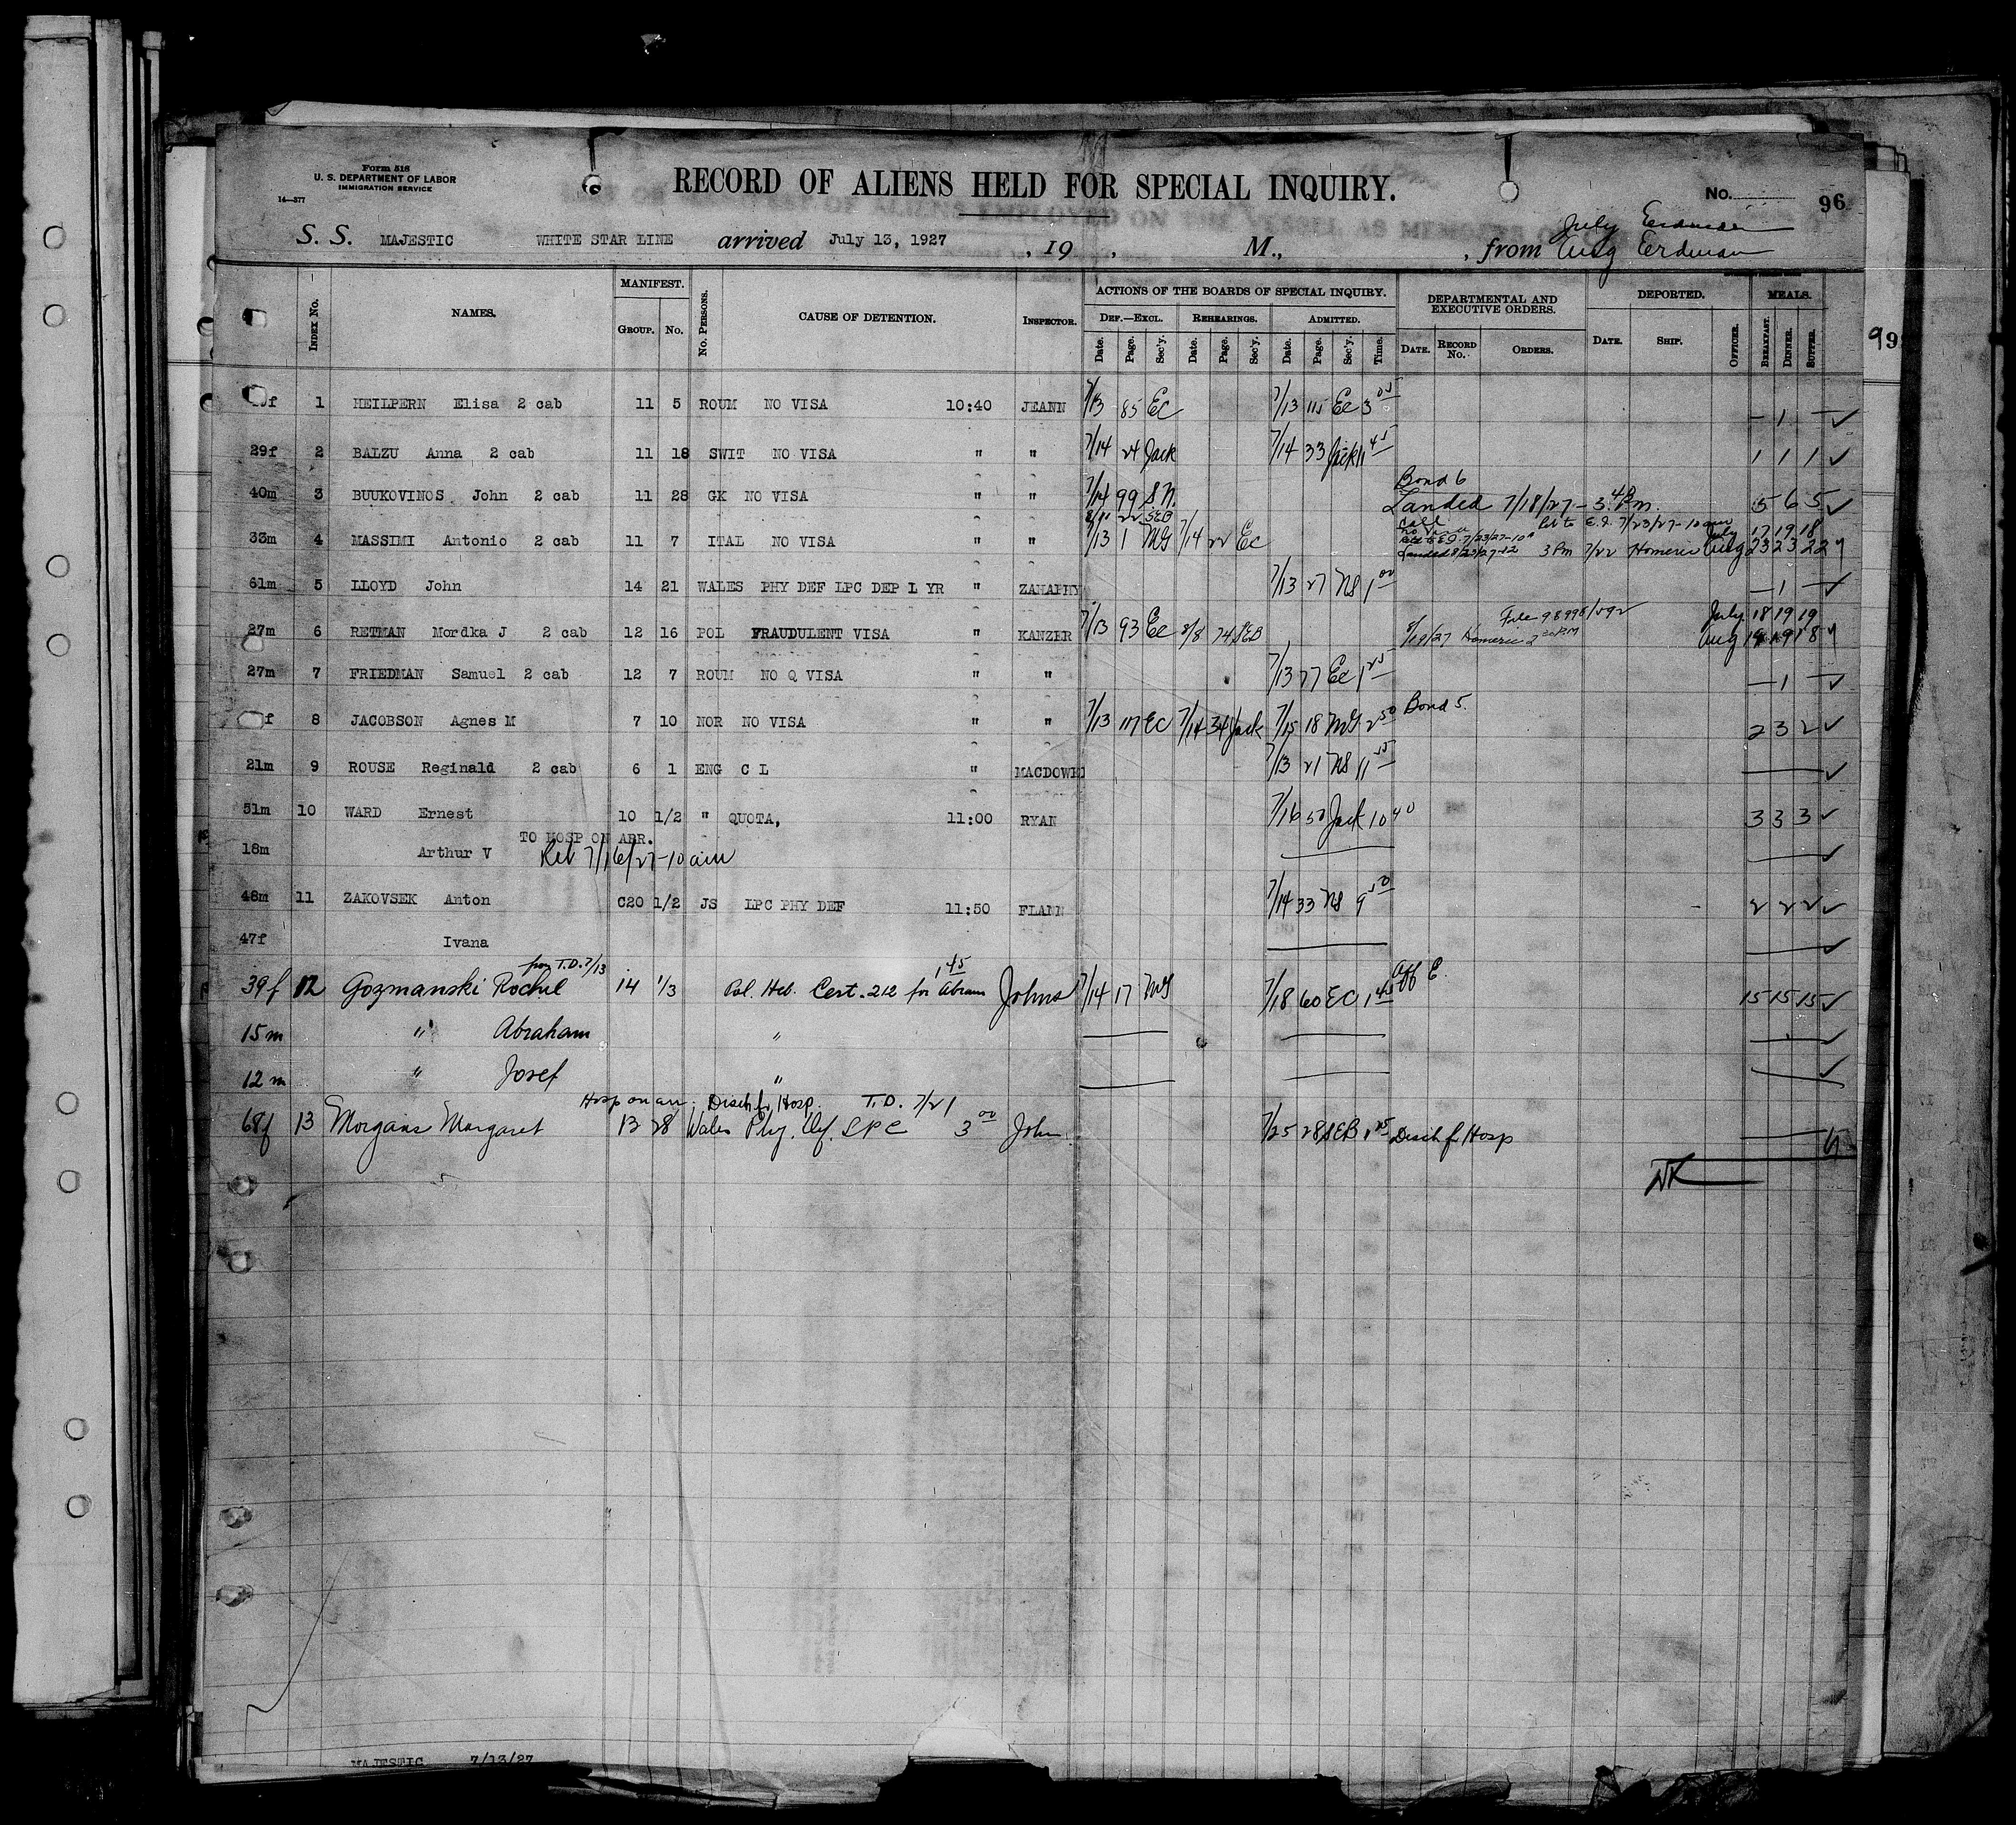 Form 518
U. S. DEPARTMENT OF LABOR
IMMIGRATION SERVICE
14—377
RECORD OF ALIENS HELD FOR SPECIAL INQUIRY.
No. 96
July Erdman
S. S. MAJESTIC WHITE STAR LINE arrived July 13, 1927 , 19 . M., , from Aug Erdman
INDEX NO. NAMES. MANIFEST. GROUP. NO. NO. PERSONS. CAUSE OF DETENTION. INSPECTOR. ACTIONS OF THE BOARDS OF SPECIAL INQUIRY. DEPARTMENTAL AND EXECUTIVE ORDERS. DEPORTED. MEALS.
DEF.—EXCL. REHEARINGS. ADMITTED.
Date. Page. Sec'y. Date. Page. Sec'y. Date. Page. Sec'y. Time. DATE. RECORD NO. ORDERS. DATE. SHIP. OFFICER. BREAKFAST. DINNER. SUPPER.
99
f 1 HEILPERN Elisa 2 cab 11 5 ROUM NO VISA 10:40 JEANN 7/13 85 EC 7/13 115 EC 3 05 — 1 — ✓
29f 2 BALZU Anna 2 cab 11 18 SWIT NO VISA " " 7/14 24 Jack 7/14 33 Jack 11 45 1 1 1 ✓
40m 3 BUUKOVINOS John 2 cab 11 28 GK NO VISA " " 7/14 99 S N. Bond 6
Landed 7/18/27 - 3 PM. 5 6 5 ✓
8/11 22 SEB
33m 4 MASSIMI Antonio 2 cab 11 7 ITAL NO VISA " " 7/13 1 MG 7/14 22 EC Ret to E.I. 7/23/27-10am July 17 19 18
Landed 8/23/27-12 3 PM 7/22 Homeric Aug 23 23 22
61m 5 LLOYD John 14 21 WALES PHY DEF LPC DEP L YR " ZAHAPHY 7/13 27 NS 1 00 — 1 — ✓
27m 6 RETMAN Mordka J 2 cab 12 16 POL FRAUDULENT VISA " KANZER 7/13 93 EC 8/8 74 SEB File 98998/592 July 18 19 19
Homeric Aug 19 19 18
27m 7 FRIEDMAN Samuel 2 cab 12 7 ROUM NO Q VISA " " 7/13 77 EC 1 25 — 1 — ✓
f 8 JACOBSON Agnes M 7 10 NOR NO VISA " " 7/13 117 EC 7/14 34 Jack 7/15 18 MG 2 50 Bond 5. 2 3 2 ✓
21m 9 ROUSE Reginald 2 cab 6 1 ENG C L " MACDOWEL 7/13 21 NS 11 55 ✓
51m 10 WARD Ernest 10 1/2 " QUOTA, 11:00 RYAN 7/16 50 Jack 10 40 3 3 3 ✓
TO HOSP ON ARR.
18m Arthur V Rel 7/16/27-10 am ✓
48m 11 ZAKOVSEK Anton C20 1/2 JS LPC PHY DEF 11:50 FLANN 7/14 33 NS 9 50 2 2 2 ✓
47f Ivana ✓
from T.D. 7/13
39f 12 Gozmanski Rochel 14 1/3 Pol. Heb. Cert. 212 for Abram 1 45 Johns 7/14 17 MG 7/18 60 EC 1 45 Aff E. 15 15 15 ✓
15m " Abraham " ✓
12m " Josef " ✓
Hosp on arr. Disch fr Hosp. T.D. 7/21
68f 13 Morgans Margaret 13 28 Wales Phy. Def. LPC 3 00 John 7/25 28 SEB 1 25 Disch fr Hosp
NK
MAJESTIC 7/13/27